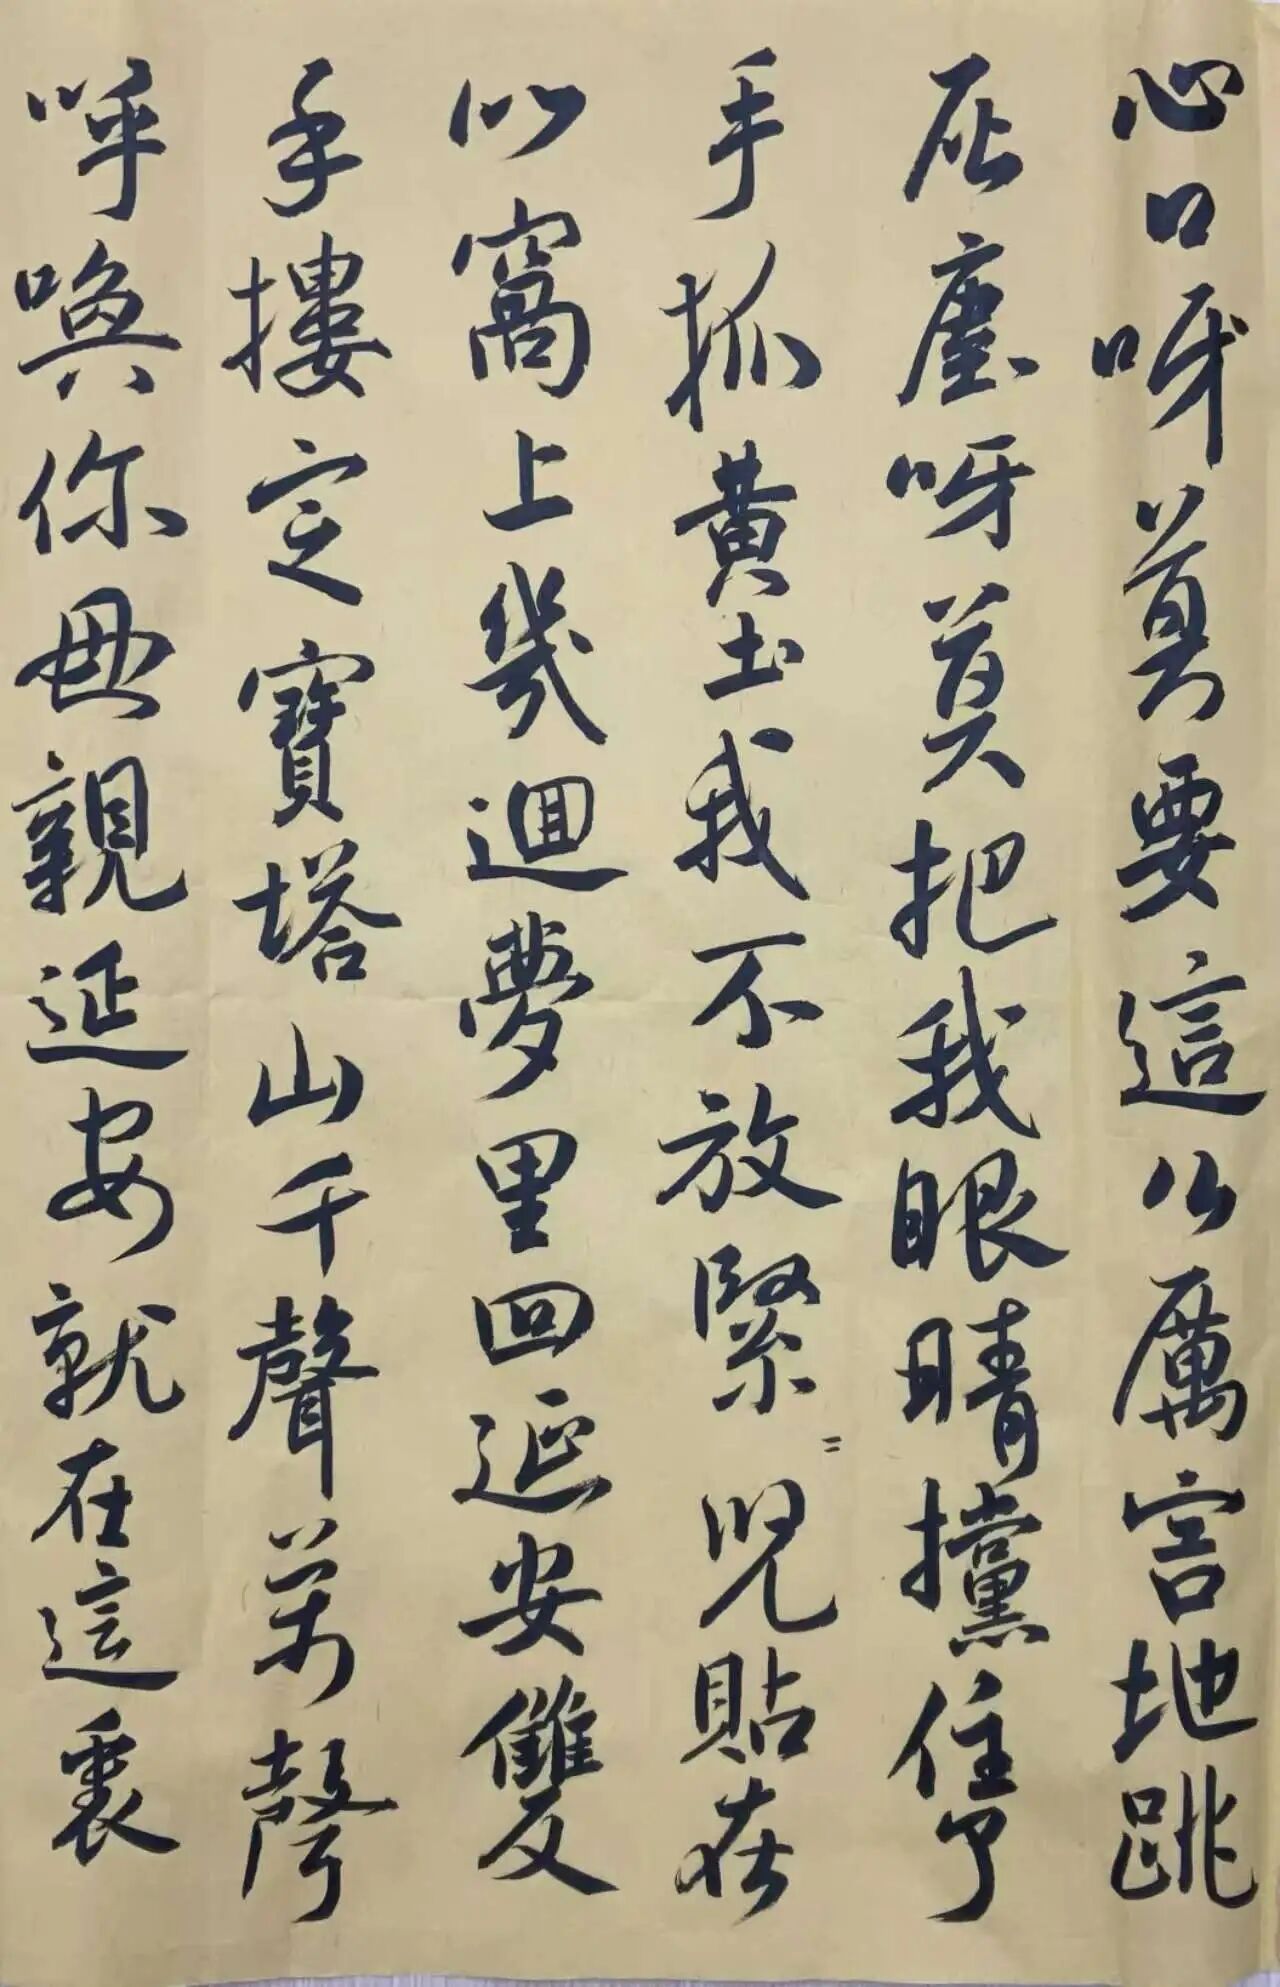 心口呀莫要這么厲害地跳
灰塵呀莫把我眼睛攩住了
手抓黃土我不放緊〻兒貼在
心窩上幾迴夢里回延安雙
手摟定寶塔山千聲萬聲
呼喚你母親延安就在這裏